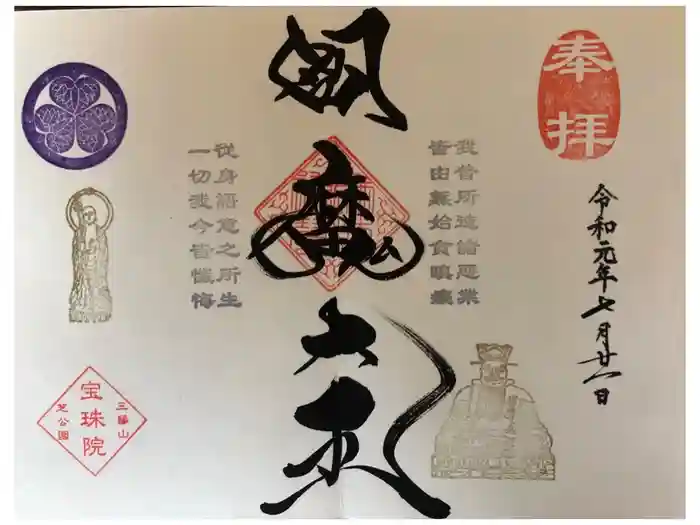 奉拝
令和元年七月廿一日
我昔所造諸悪業
皆由無始貪瞋癡
閻魔大王
従身語意之所生
一切我今皆懺悔
三縁山
宝珠院
芝公園